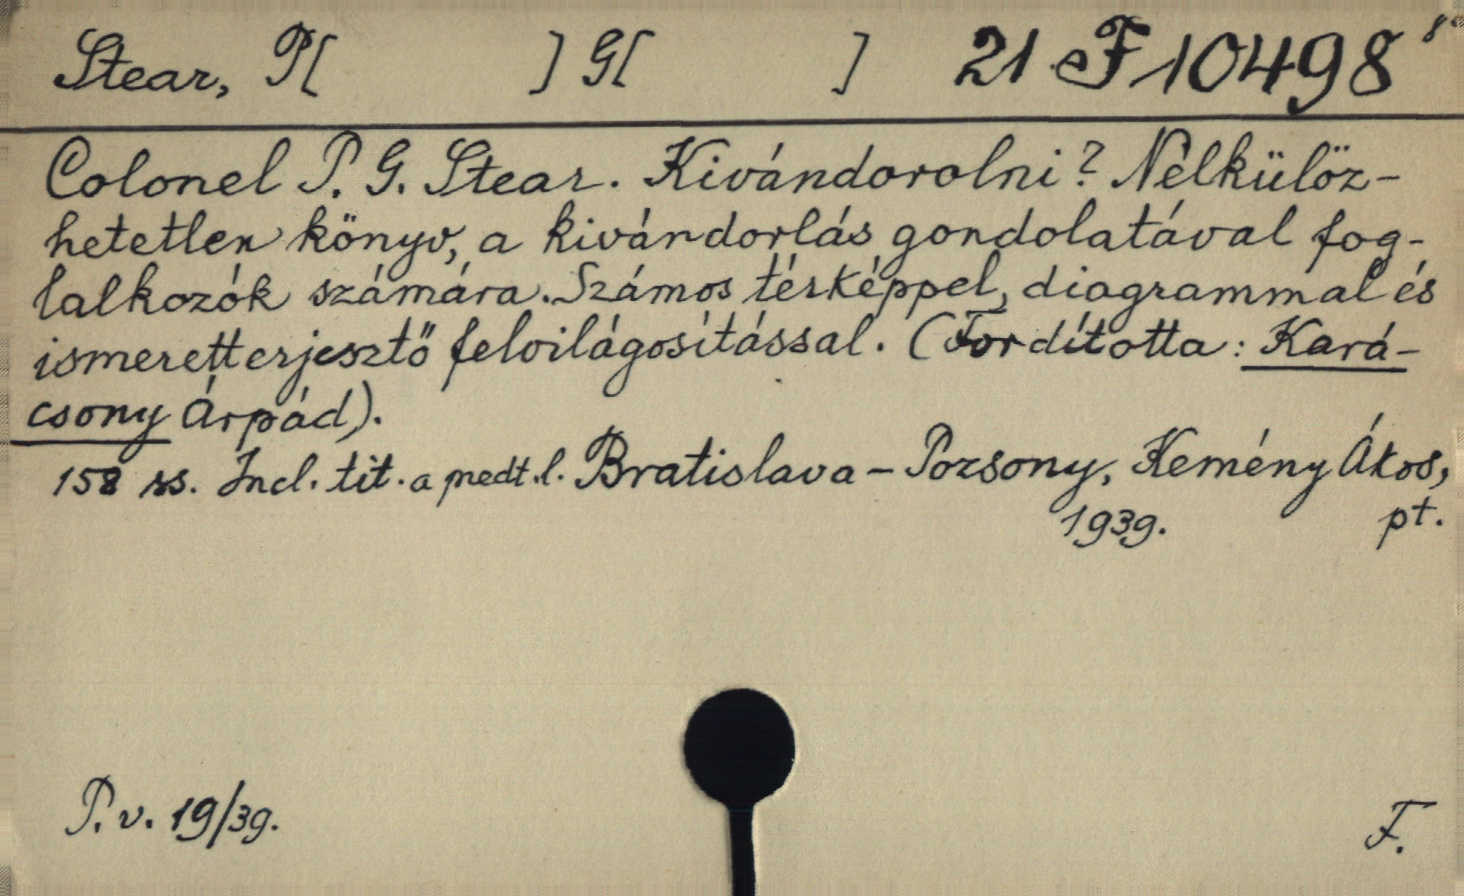 Stear, P[ ] G[ ] 21 F 10498 8°
Colonel P. G. Stear. Kivándorolni? Nélkülöz-
hetetlen könyv, a kivándorlás gondolatával fog-
lalkozók számára. Számos térképpel, diagrammal és
ismeretterjesztő felvilágosítással. (Fordította: Kará-
csony Árpád).
158 ss. Incl. tit. a predt. l. Bratislava – Pozsony, Kemény Ákos,
1939. pt.
P. v. 19/39. F.